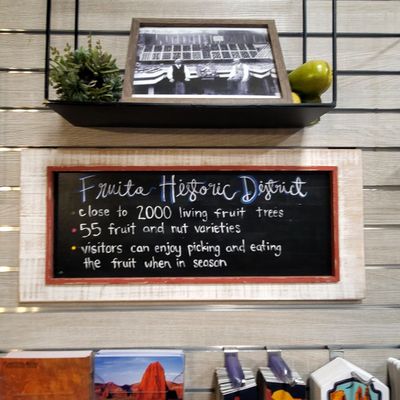 Fruita Historic District
• close to 2000 living fruit trees
• 55 fruit and nut varieties
• visitors can enjoy picking and eating
the fruit when in season